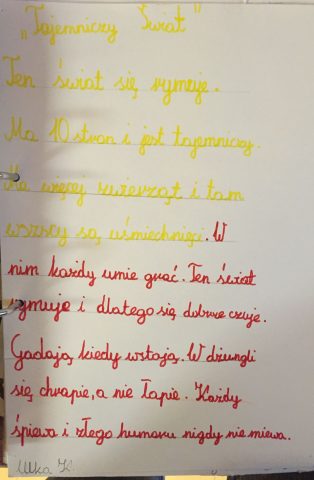 „Tajemniczy Świat”
Ten świat się rymuje.
Ma 10 stron i jest tajemniczy.
Ma więcej zwierząt i tam
wszscy są uśmiechnięci. W
nim każdy umie grać. Ten świat
rymuje i dlatego się dobrze czuje.
Gadają kiedy wstają. W dżungli
się chrapie, a nie łapie. Każdy
śpiewa i złego humoru nigdy nie miewa.
K.